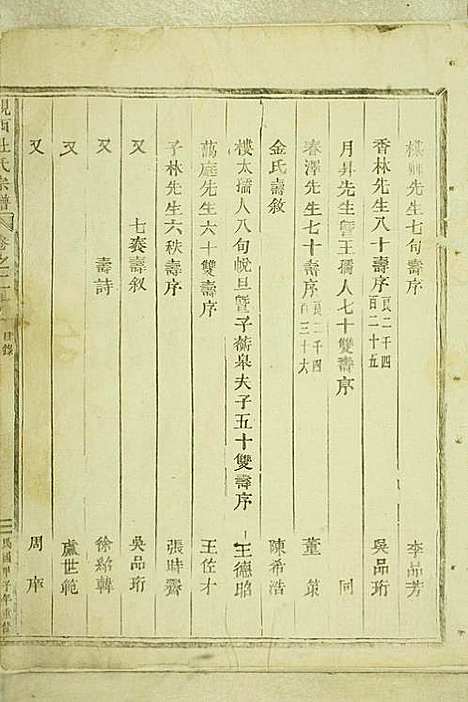 先生七旬壽序 李品芳
香林先生八十壽序 頁二千四百二十五 吳品珩
月昇先生暨王孺人七十雙壽序 同
春澤先生七十壽序 頁二千四百三十六 董策
金氏壽敘 陳希浩
樓太孺人八旬帨旦暨子蘅皋夫子五十雙壽序 王德昭
萬庭先生六十雙壽序 王佐才
子林先生六秩壽序 張時霽
又 七袠壽叙 吳品珩
又 壽詩 徐紹韓
又 盧世範
又 周庠
峴西杜氏宗譜 卷之 目錄 民國甲子年重修